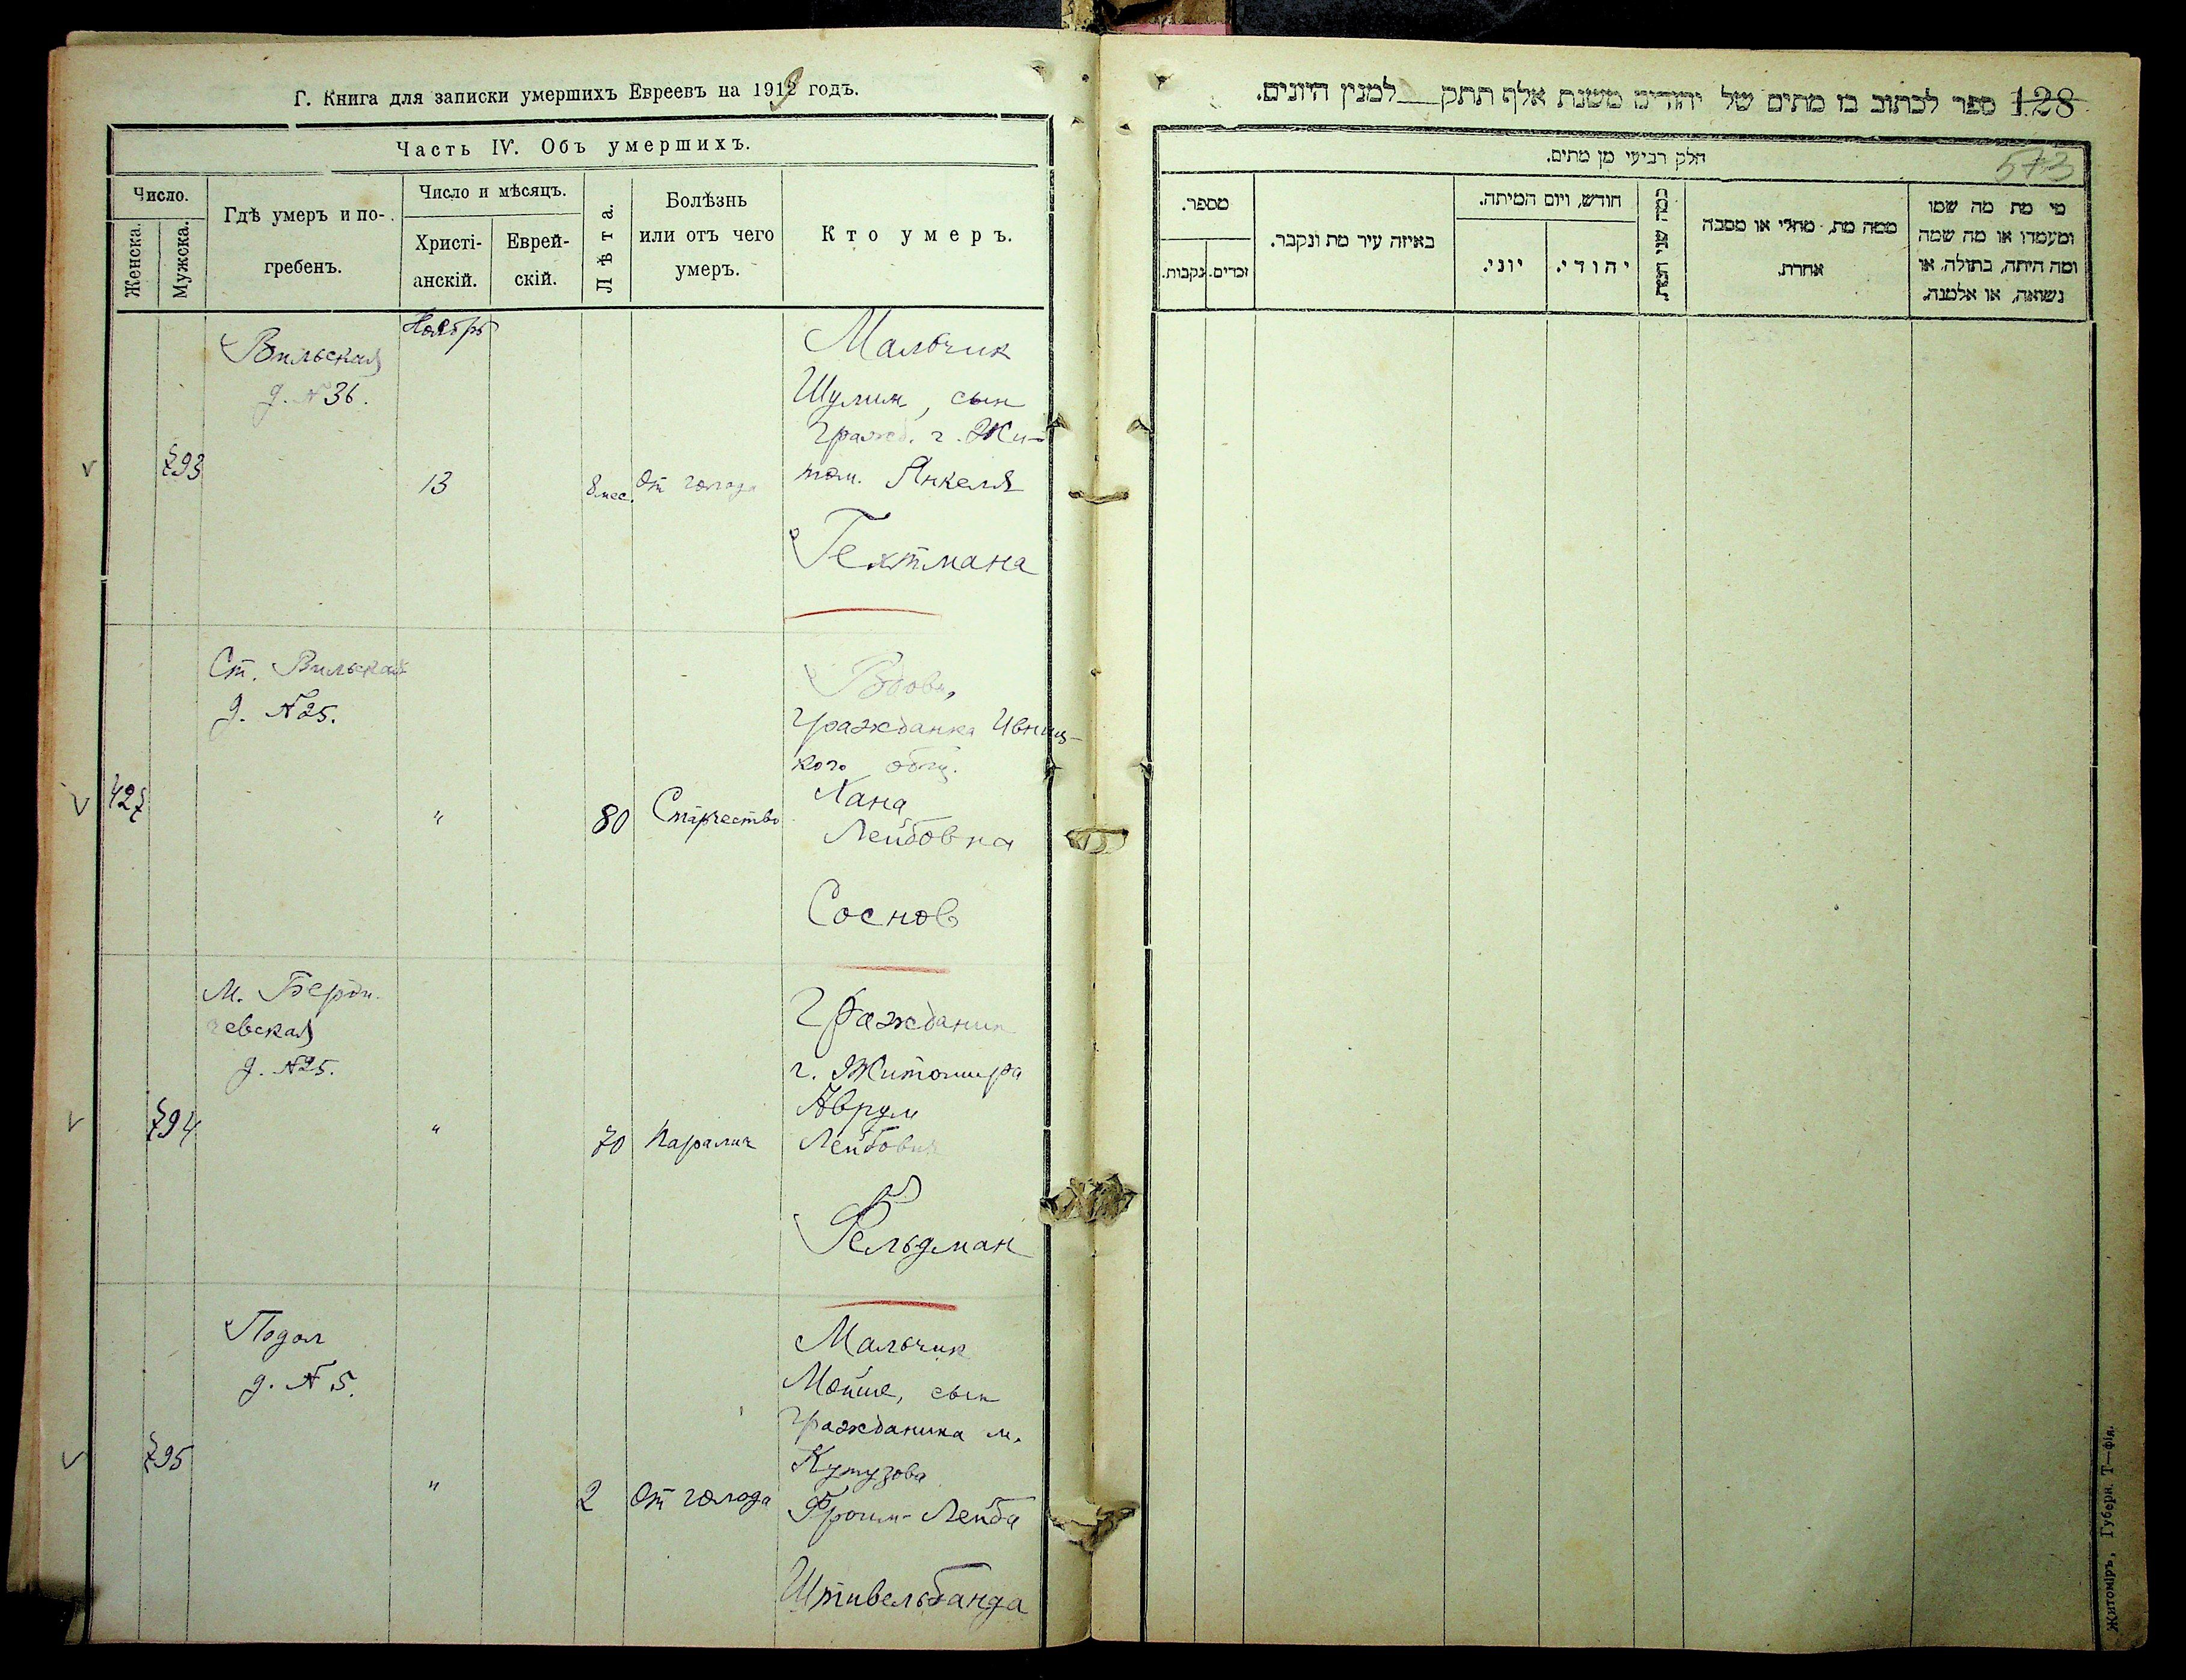 Г. Книга для записки умершихъ Евреевъ на 1919 годъ.
Часть IV. Объ умершихъ.
Число.
Женска.
Мужска.
Гдѣ умеръ и по-
гребенъ.
Число и мѣсяцъ.
Христі-
анскій.
Еврей-
скій.
Лѣта.
Болѣзнь
или отъ чего
умеръ.
Кто умеръ.
Ноябрь
Вильская
д. № 36.
793
13
8 мес.
От голода
Мальчик
Шулим, сын
гражд. г. Жи-
том. Янкеля
Гехтмана
Ст. Вильская
д. № 25.
427
"
80
Старчество
Вдова,
гражданка Ивниц-
кого общ.
Хана
Лейбовна
Соснов
М. Берди-
чевская
д. № 25.
794
"
70
Паралич
Гражданин
г. Житомира
Аврум
Лейбович
Фельдман
Подол
д. № 5.
795
"
2
От голода
Мальчик
Мойше, сын
гражданина м.
Кутузова
Фроим-Лейба
Штивельбанда
128 ספר לכתוב בו מתים של יהודים משנת אלף תתק___למנין היונים.
573
חלק רביעי מן מתים.
מספר.
נקבות.
זכרים.
באיזה עיר מת ונקבר.
חודש, ויום המיתה.
יוני.
יהודי.
כמה שני חייו.
ממה מת, מחלי או מסבה
אחרת.
מי מת מה שמו
ומעמדו או מה שמה
ומה היתה, בתולה, או
נשואה, או אלמנה.
Житоміръ, Губерн. Т—фія.